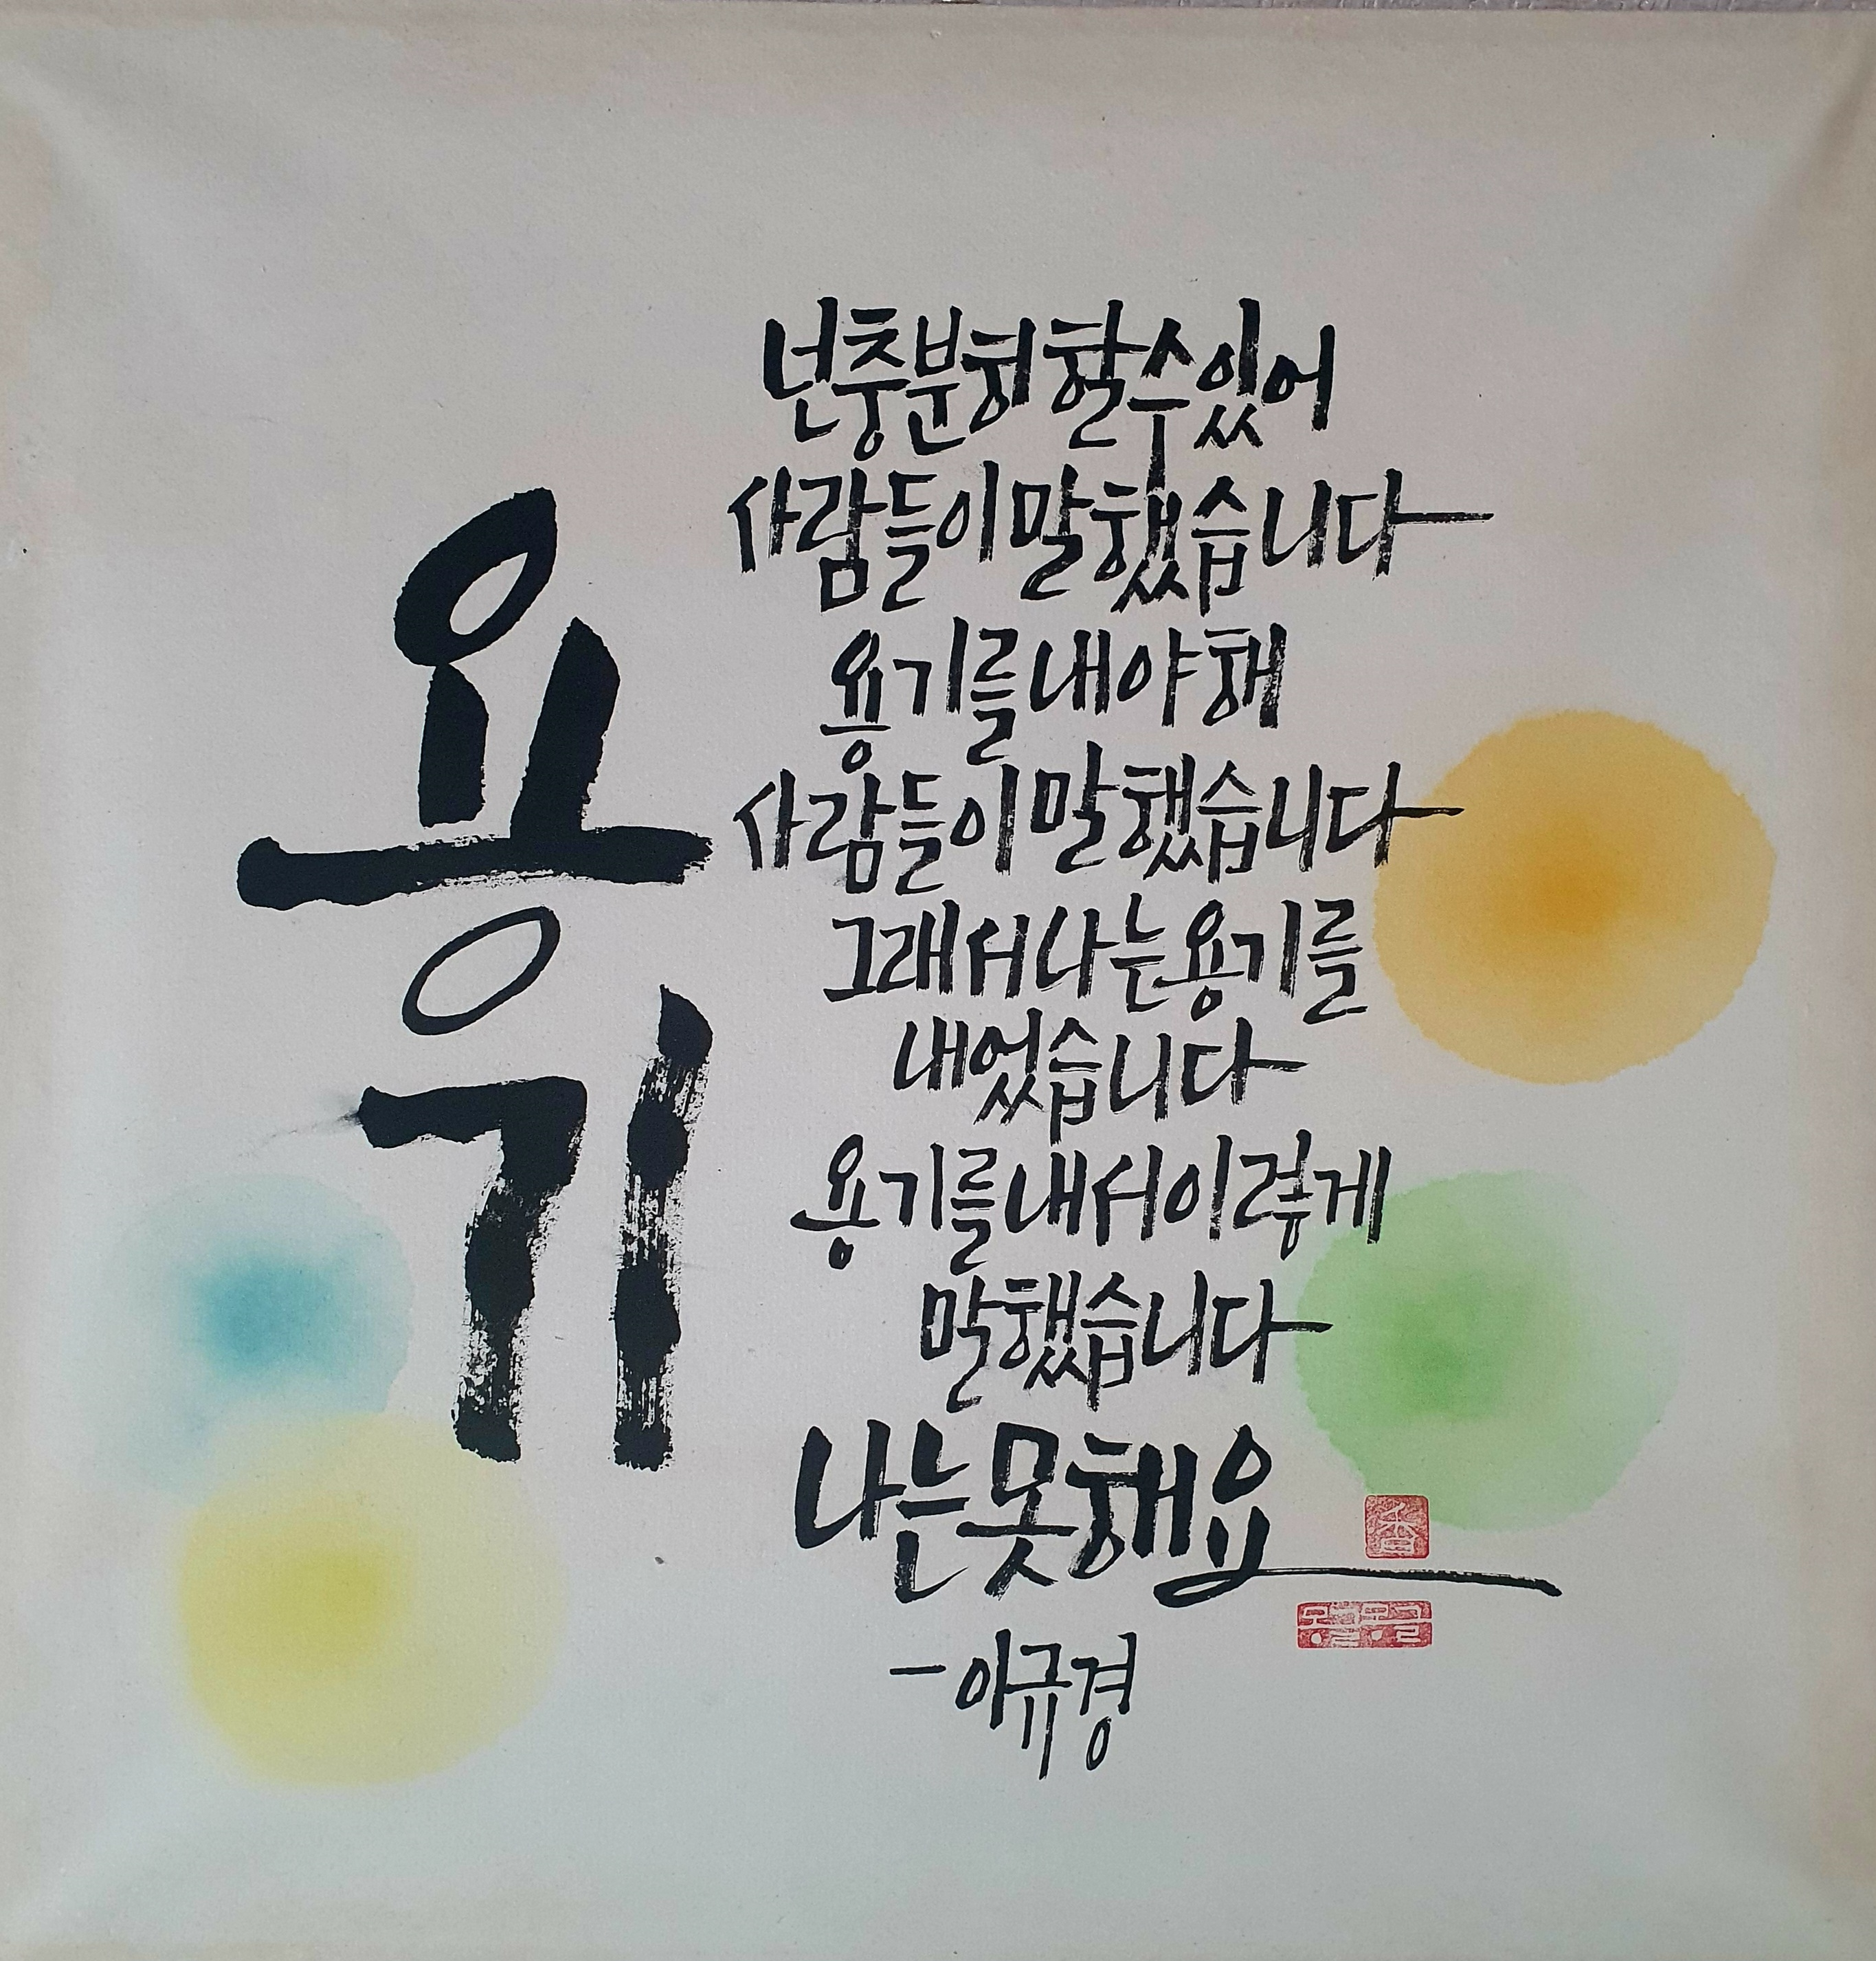 용기
넌충분히할수있어
사람들이말했습니다
용기를내야해
사람들이말했습니다
그래서나는용기를
내었습니다
용기를내서이렇게
말했습니다
나는못해요
香
몽글몽글
-이규경